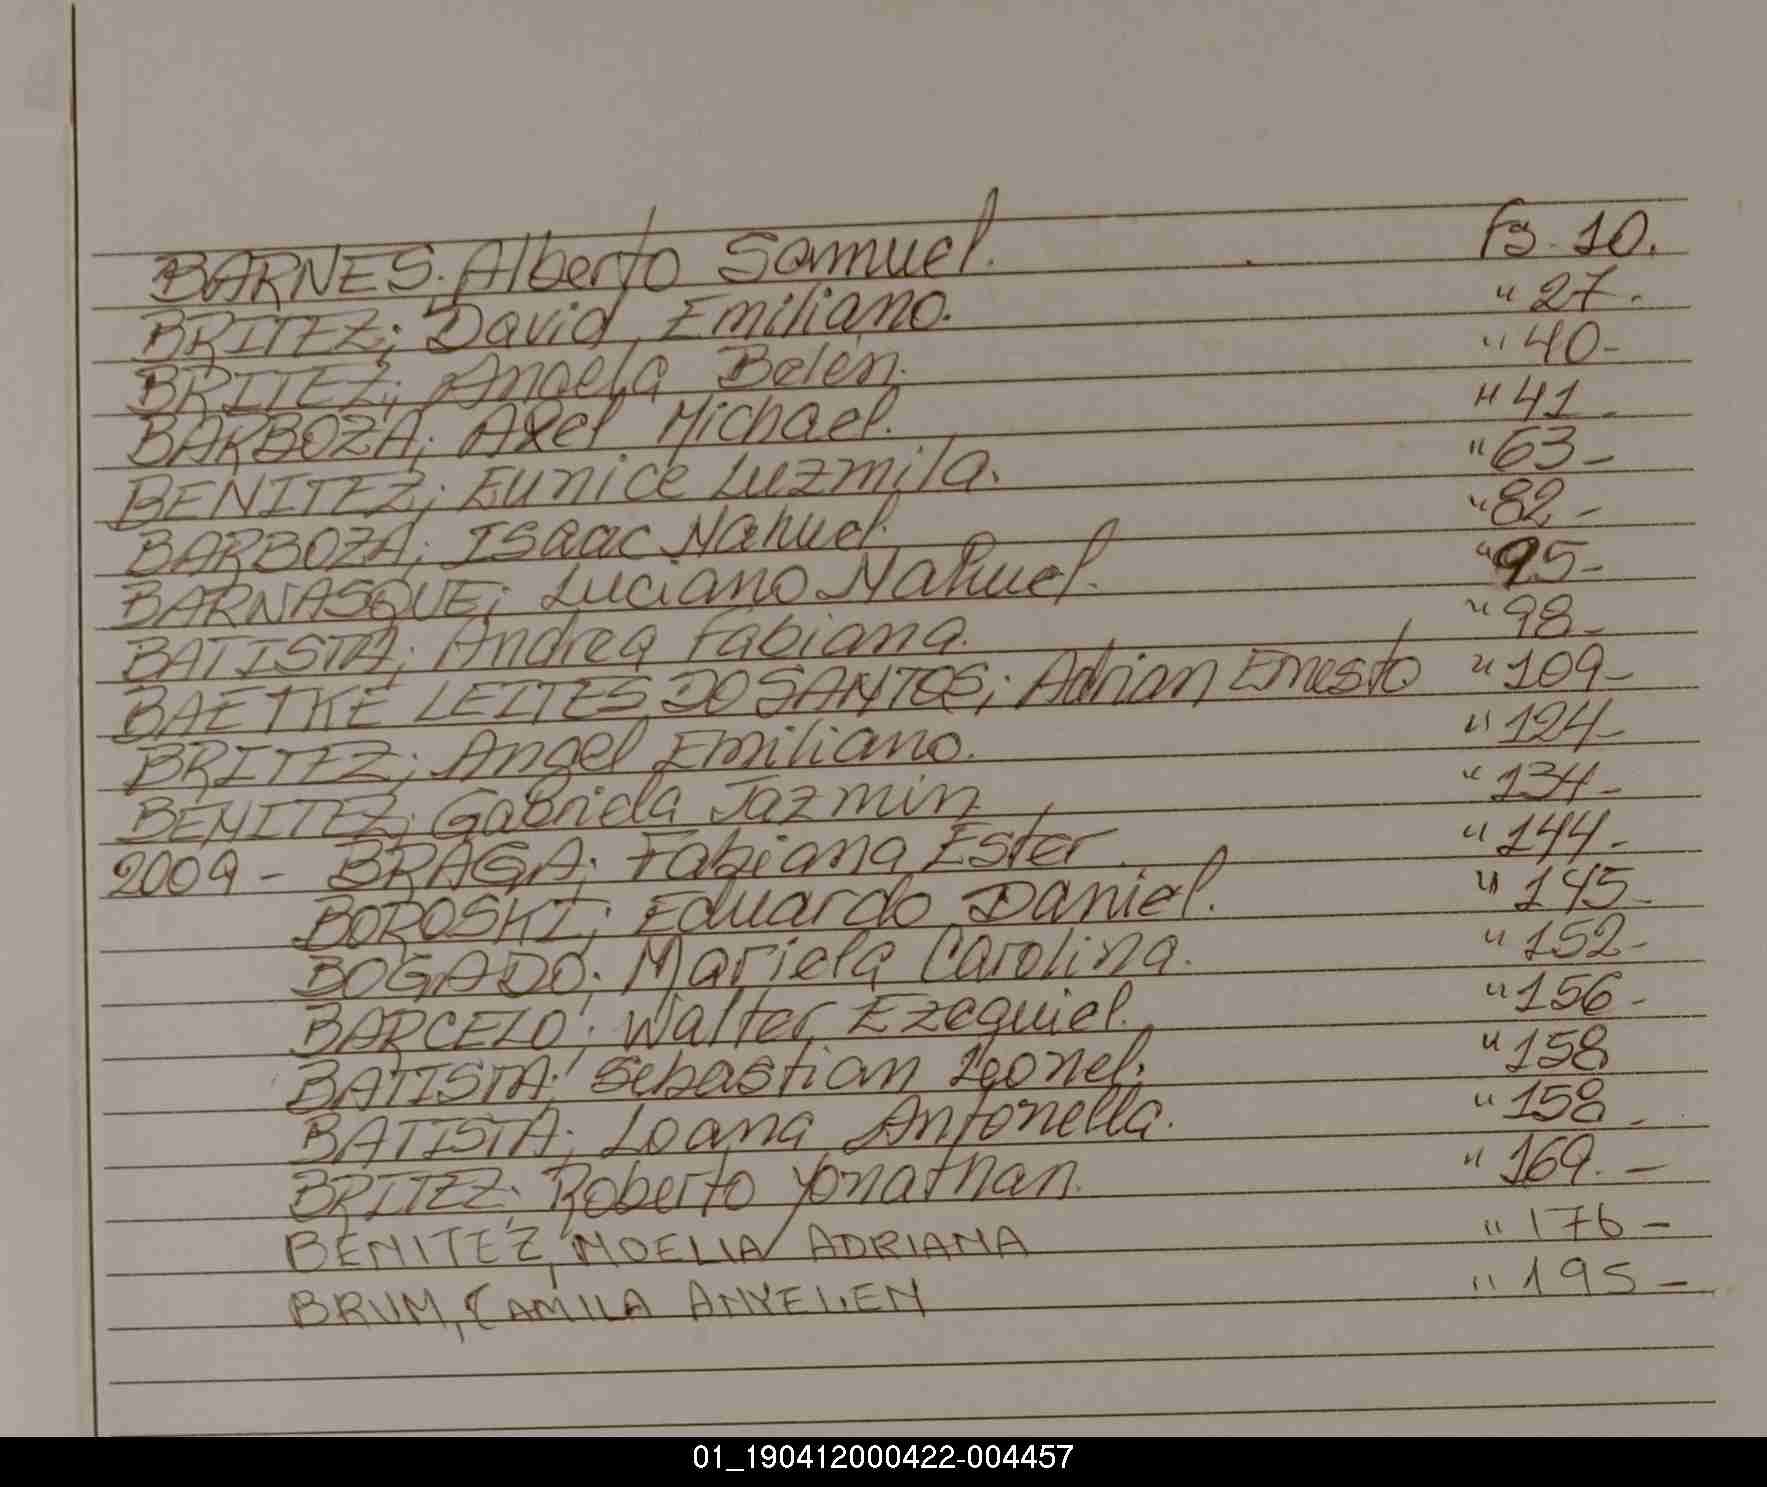 BARNES; Alberto Samuel. Fs. 10.
BRITEZ; David Emiliano. " 27.
BRITEZ; Angela Belén. " 40-
BARBOZA; Axel Michael. " 41-
BENITEZ; Eunice Luzmila. " 63-
BARBOZA; Isaac Nahuel. " 82-
BARNASQUE; Luciano Nahuel. " 95-
BATISTA; Andrea Fabiana. " 98-
BAETKE LEITES DO SANTOS; Adrian Ernesto " 109-
BRITEZ; Angel Emiliano. " 124-
BENITEZ; Gabriela Jazmin " 134-
2009 - BRAGA; Fabiana Ester. " 144-
BOROSKI; Eduardo Daniel. " 145-
BOGADO; Mariela Carolina. " 152-
BARCELO; Walter Ezequiel. " 156-
BATISTA; Sebastian Leonel. " 158
BATISTA; Loana Antonella. " 158-
BRITEZ; Roberto Yonathan. " 169.-
BENITEZ, NOELIA ADRIANA " 176-
BRUM, CAMILA ANYELEN " 195-
01_190412000422-004457